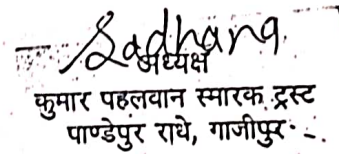 Sadhana
अध्यक्ष
कुमार पहलवान स्मारक ट्रस्ट
पाण्डेपुर राधे, गाजीपुर